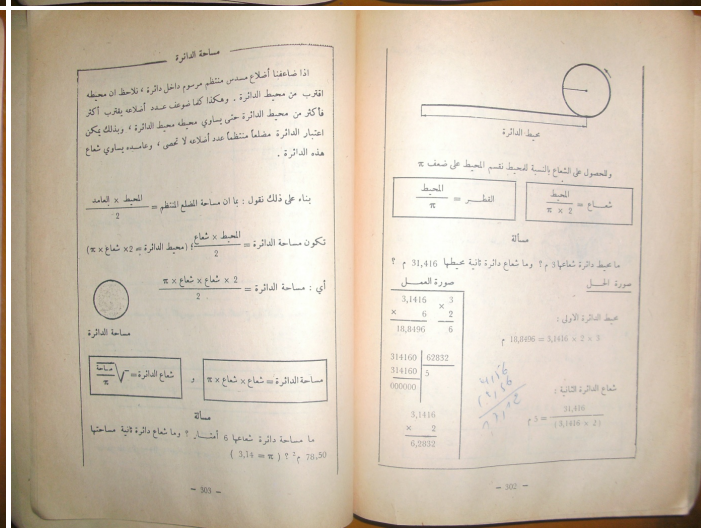 محيط الدائرة
وللحصول على الشعاع بالنسبة للمحيط نقسم المحيط على ضعف π
شعاع = المحيط / 2 × π
القطر = المحيط / π
مسألة
ما محيط دائرة شعاعها 3 م ؟ وما شعاع دائرة ثانية محيطها 31,416 م ؟
صورة الحل
صورة العمل
محيط الدائرة الاولى :
3 × 2 × 3,1416 = 18,8496 م
شعاع الدائرة الثانية :
31,416 / (3,1416 × 2) = 5 م
3,1416
× 6
18,8496
3
× 2
6
314160 62832
314160 5
000000
3,1416
× 2
6,2832
– 302 –
مساحة الدائرة
اذا ضاعفنا أضلاع مسدس منتظم مرسوم داخل دائرة ، نلاحظ ان محيطه
اقترب من محيط الدائرة . وهكذا كلما ضوعف عدد أضلاعه يقترب أكثر
فأكثر من محيط الدائرة حتى يساوي محيطه محيط الدائرة ، وبذلك يمكن
اعتبار الدائرة مضلعاً منتظماً عدد أضلاعه لا تحصى ، وعامده يساوي شعاع
هذه الدائرة .
بناء على ذلك نقول : بما ان مساحة المضلع المنتظم = المحيط × العامد / 2
تكون مساحة الدائرة = المحيط × شعاع / 2 ؛ (محيط الدائرة = 2 × شعاع × π)
أي : مساحة الدائرة = 2 × شعاع × شعاع × π / 2
مساحة الدائرة
مساحة الدائرة = شعاع × شعاع × π
و
شعاع الدائرة = √ مساحة / π
مسألة
ما مساحة دائرة شعاعها 6 أمتار ؟ وما شعاع دائرة ثانية مساحتها
78,50 م² ؟ ( π = 3,14 )
– 303 –